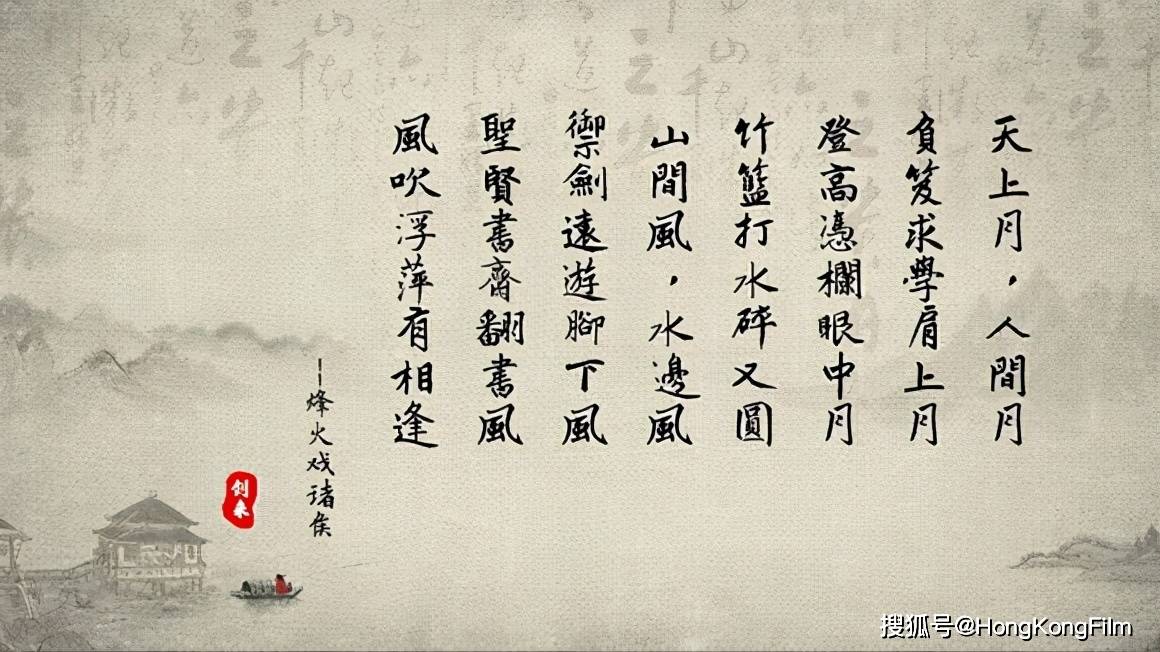 天上月，人間月
負笈求學肩上月
登高憑欄眼中月
竹籃打水碎又圓
山間風，水邊風
禦劍遠遊腳下風
聖賢書齋翻書風
風吹浮萍有相逢
—烽火戏诸侯
剑来
搜狐号@HongKongFilm